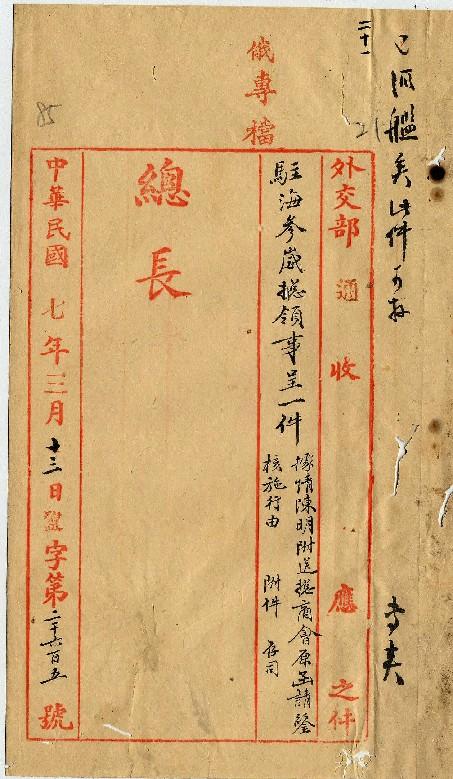 已派艦矣此件可存
二十一
俄專檔
85
外交部通收 應之件
駐海參崴總領事呈一件
據情陳明附送總商會原函請鑒
核施行由 附件 存司
總長
中華民國七年三月十三日 字第二千六百五 號